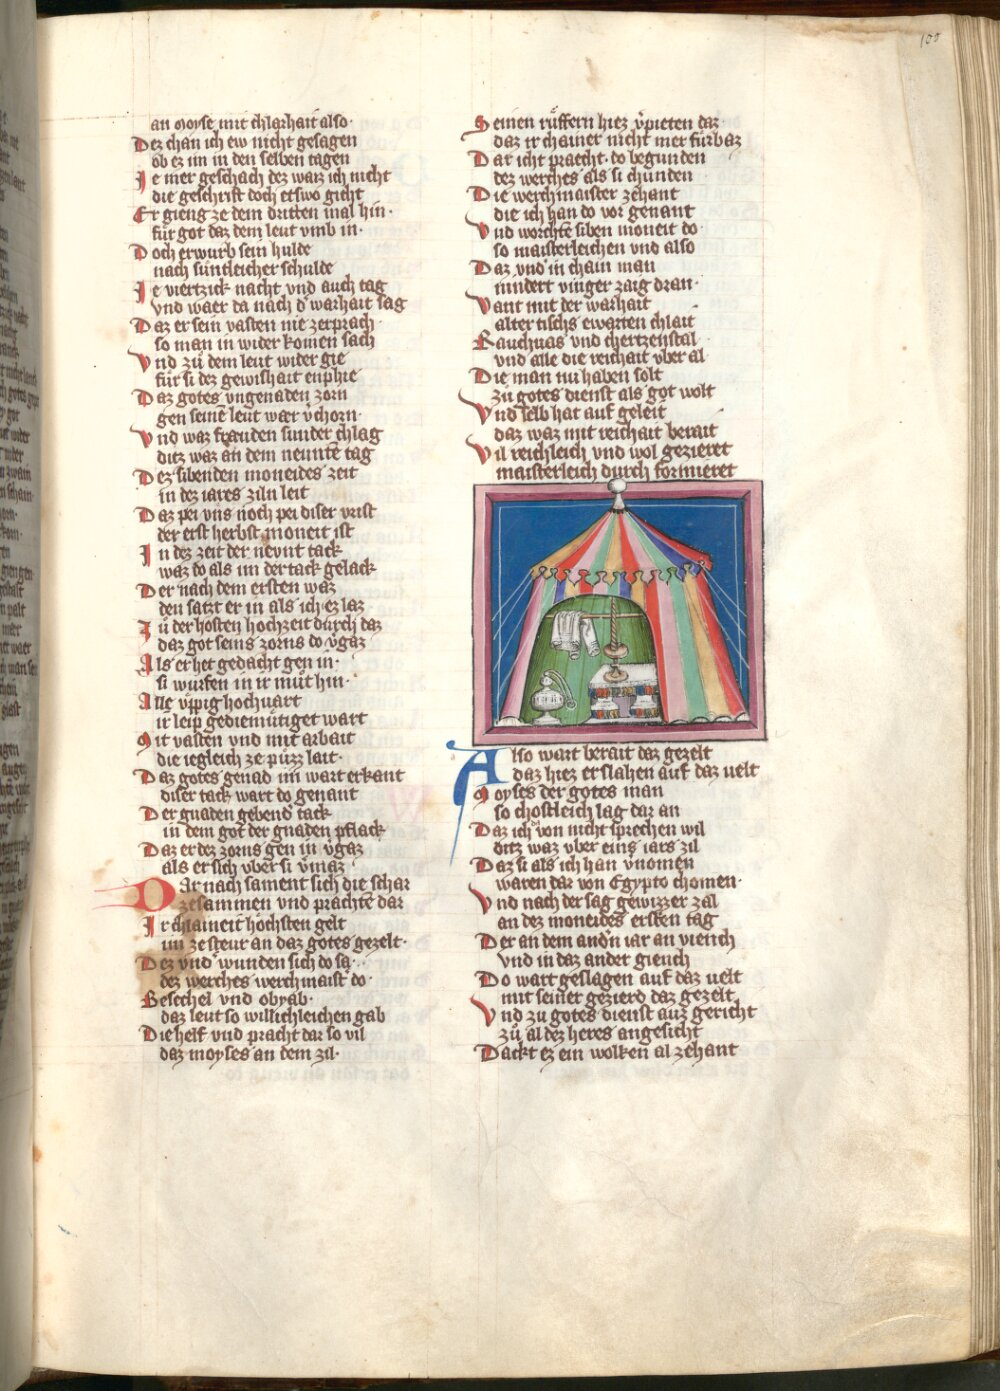 105
an Moyse mit chlarhait also·
Dez chan ich ew nicht gesagen
ob ez im in den selben tagen
Je mer geschach dez waiz ich nicht
die geschrift doch etswo gicht
Er gieng ze dem dritten mal hin·
für got daz dem leut vmb in·
Doch erwurb sein hulde
nach süntleicher schulde
Je viertzick nacht vnd auch tag
vnd waer da nach d' warhait sag
Daz er sein vasten nie zerprach·
so man in wider komen sach
Vnd zů dem leut wider gie
für si dez gewishait enphie
Daz gotes vngenaden zorn
gen seinē leut waer v'chorn·
Vnd waz frauden sunder chlag
ditz waz an dem neuntē tag
Dez sibenden moneides zeit
in dez iares ziln leit
Daz pei vns noch pei diser vrist
der erst herbst moneit ist
In dez zeit der neynt tack
waz do als im der tack gelack
Der nach dem ersten waz
den satzt er in als ich ez laz
Zu der hosten hochzeit durch daz
daz got seins zorns do v'gaz
Als er het gedacht gen in·
si wurfen in ir můt hin·
Alle v'ppig hochuart
ir leip gediemütiget wart
Mit vasten vnd mit arbait
die iegleich ze půzz lait·
Daz gotes genad im wart erkant
diser tack wart do genant
Der gnaden gebend' tack
in dem got der gnaden pflack
Daz er dez zorns gen in v'gaz
als er sich vber si v'maz
Dar nach sament sich die schar
zesammen vnd prachte dar
Ir chlaineit höchsten gelt
im ze steur an daz gotes gezelt·
Dez vnd' wunden sich do sa·
dez werches werchmaist' do·
Beselhel vnd obyab·
daz leut so willichleichen gab
Die helf vnd pracht dar so vil
daz moyses an dem zil·
Seinen rüffern hiez v'pieten daz
daz ir chainer nicht mer fürbaz
Dar icht praecht· do begunden
dez werches als si chunden
Die werchmaister zehant
die ich han do vor genant
Vnd worchtē siben moneit do·
so maisterleichen vnd also
Daz vnd' in chain man
nindert vinger zaig dran·
Vant mit der warhait
alter tischs ewarten chlait
Rauchuas vnd chertzenstal
vnd alle die reichait vber al
Die man nu haben solt
zů gotes dienst als got wolt
Vnd selb hat auf geleit
daz waz mit reichait berait
Vil reichleich vnd wol gezieret
maisterleich durch formieret
Also wart berait daz gezelt
daz hiez er slahen auf daz uelt
Moyses der gotes man
so chostleich lag dar an
Daz ich da von nicht sprechen wil
ditz waz vber eins iars zil
Daz si als ich han v'nomen
waren dar von Egypto chomen·
Vnd nach der sag gewizzer zal
an dez moneides ersten tag
Der an dem and'n iar an vieich
vnd in daz ander giench
Do wart geslagen auf daz uelt
mit seiner gezierd daz gezelt
Vnd zu gotes dienst auz gericht
zů al dez heres angesicht
Dackt ez ein wolken al zehant